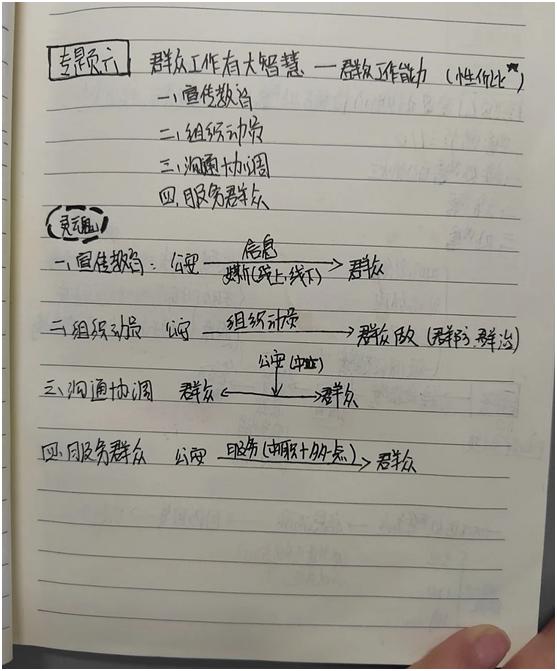 专题六 群众工作有大智慧 — 群众工作能力 (性价比★)
一、宣传教育
二、组织动员
三、沟通协调
四、服务群众
灵魂
一、宣传教育: 公安 信息 媒介(线上,线下) 群众
二、组织动员 公安 组织动员 群众做 (群防、群治)
公安(中立)
三、沟通协调 群众 群众
四、服务群众 公安 服务(本职+多一点) 群众